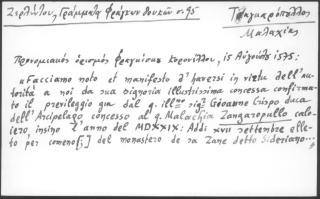 Ζερλέντου, Γράμματα Φράγκων δουκῶν σ. 95
Τζαγγαρόπουλλος
Μαλαχίας
Προνομιακὸς ὁρισμὸς Φραγκίσκου Κορονέλλου, 15 Αὐγούστου 1575:
"Facciamo noto et manifesto d'haversi in virtù dell'au-
torità a noi da sua signoria Illustrissima concessa confirma-
to il previleggio già dal q. ill.mo sig.r Giovanne Crispo duca
dell'Arcipelago concesso al q. Malachia Zangaropullo calo-
iero, insino l'anno del MDXXIX: Addì XVII settembre elle-
to per comeno[;] del monastero de za Zane detto Sideriano...»